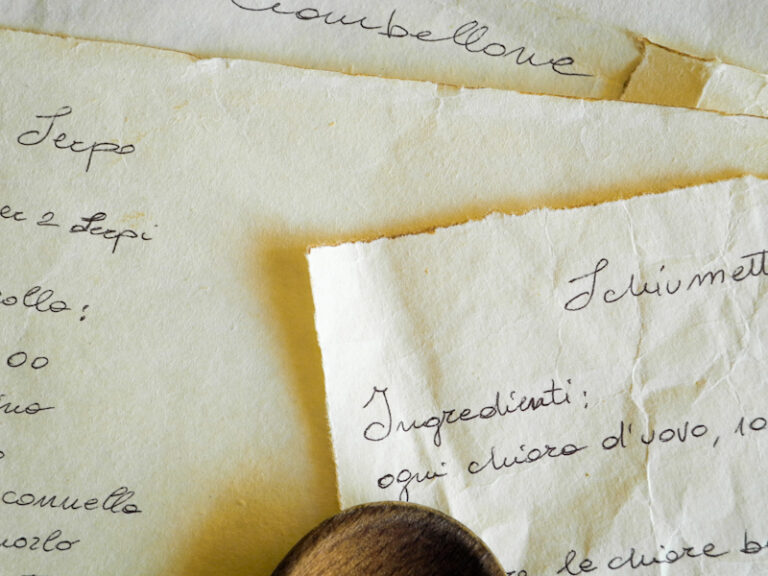 Ciambellone
Serpe
er 2 Serpi
olla:
00
ino
cannella
uorlo
Schiumett
Ingredienti:
ogni chiara d'uovo, 10
re le chiare b